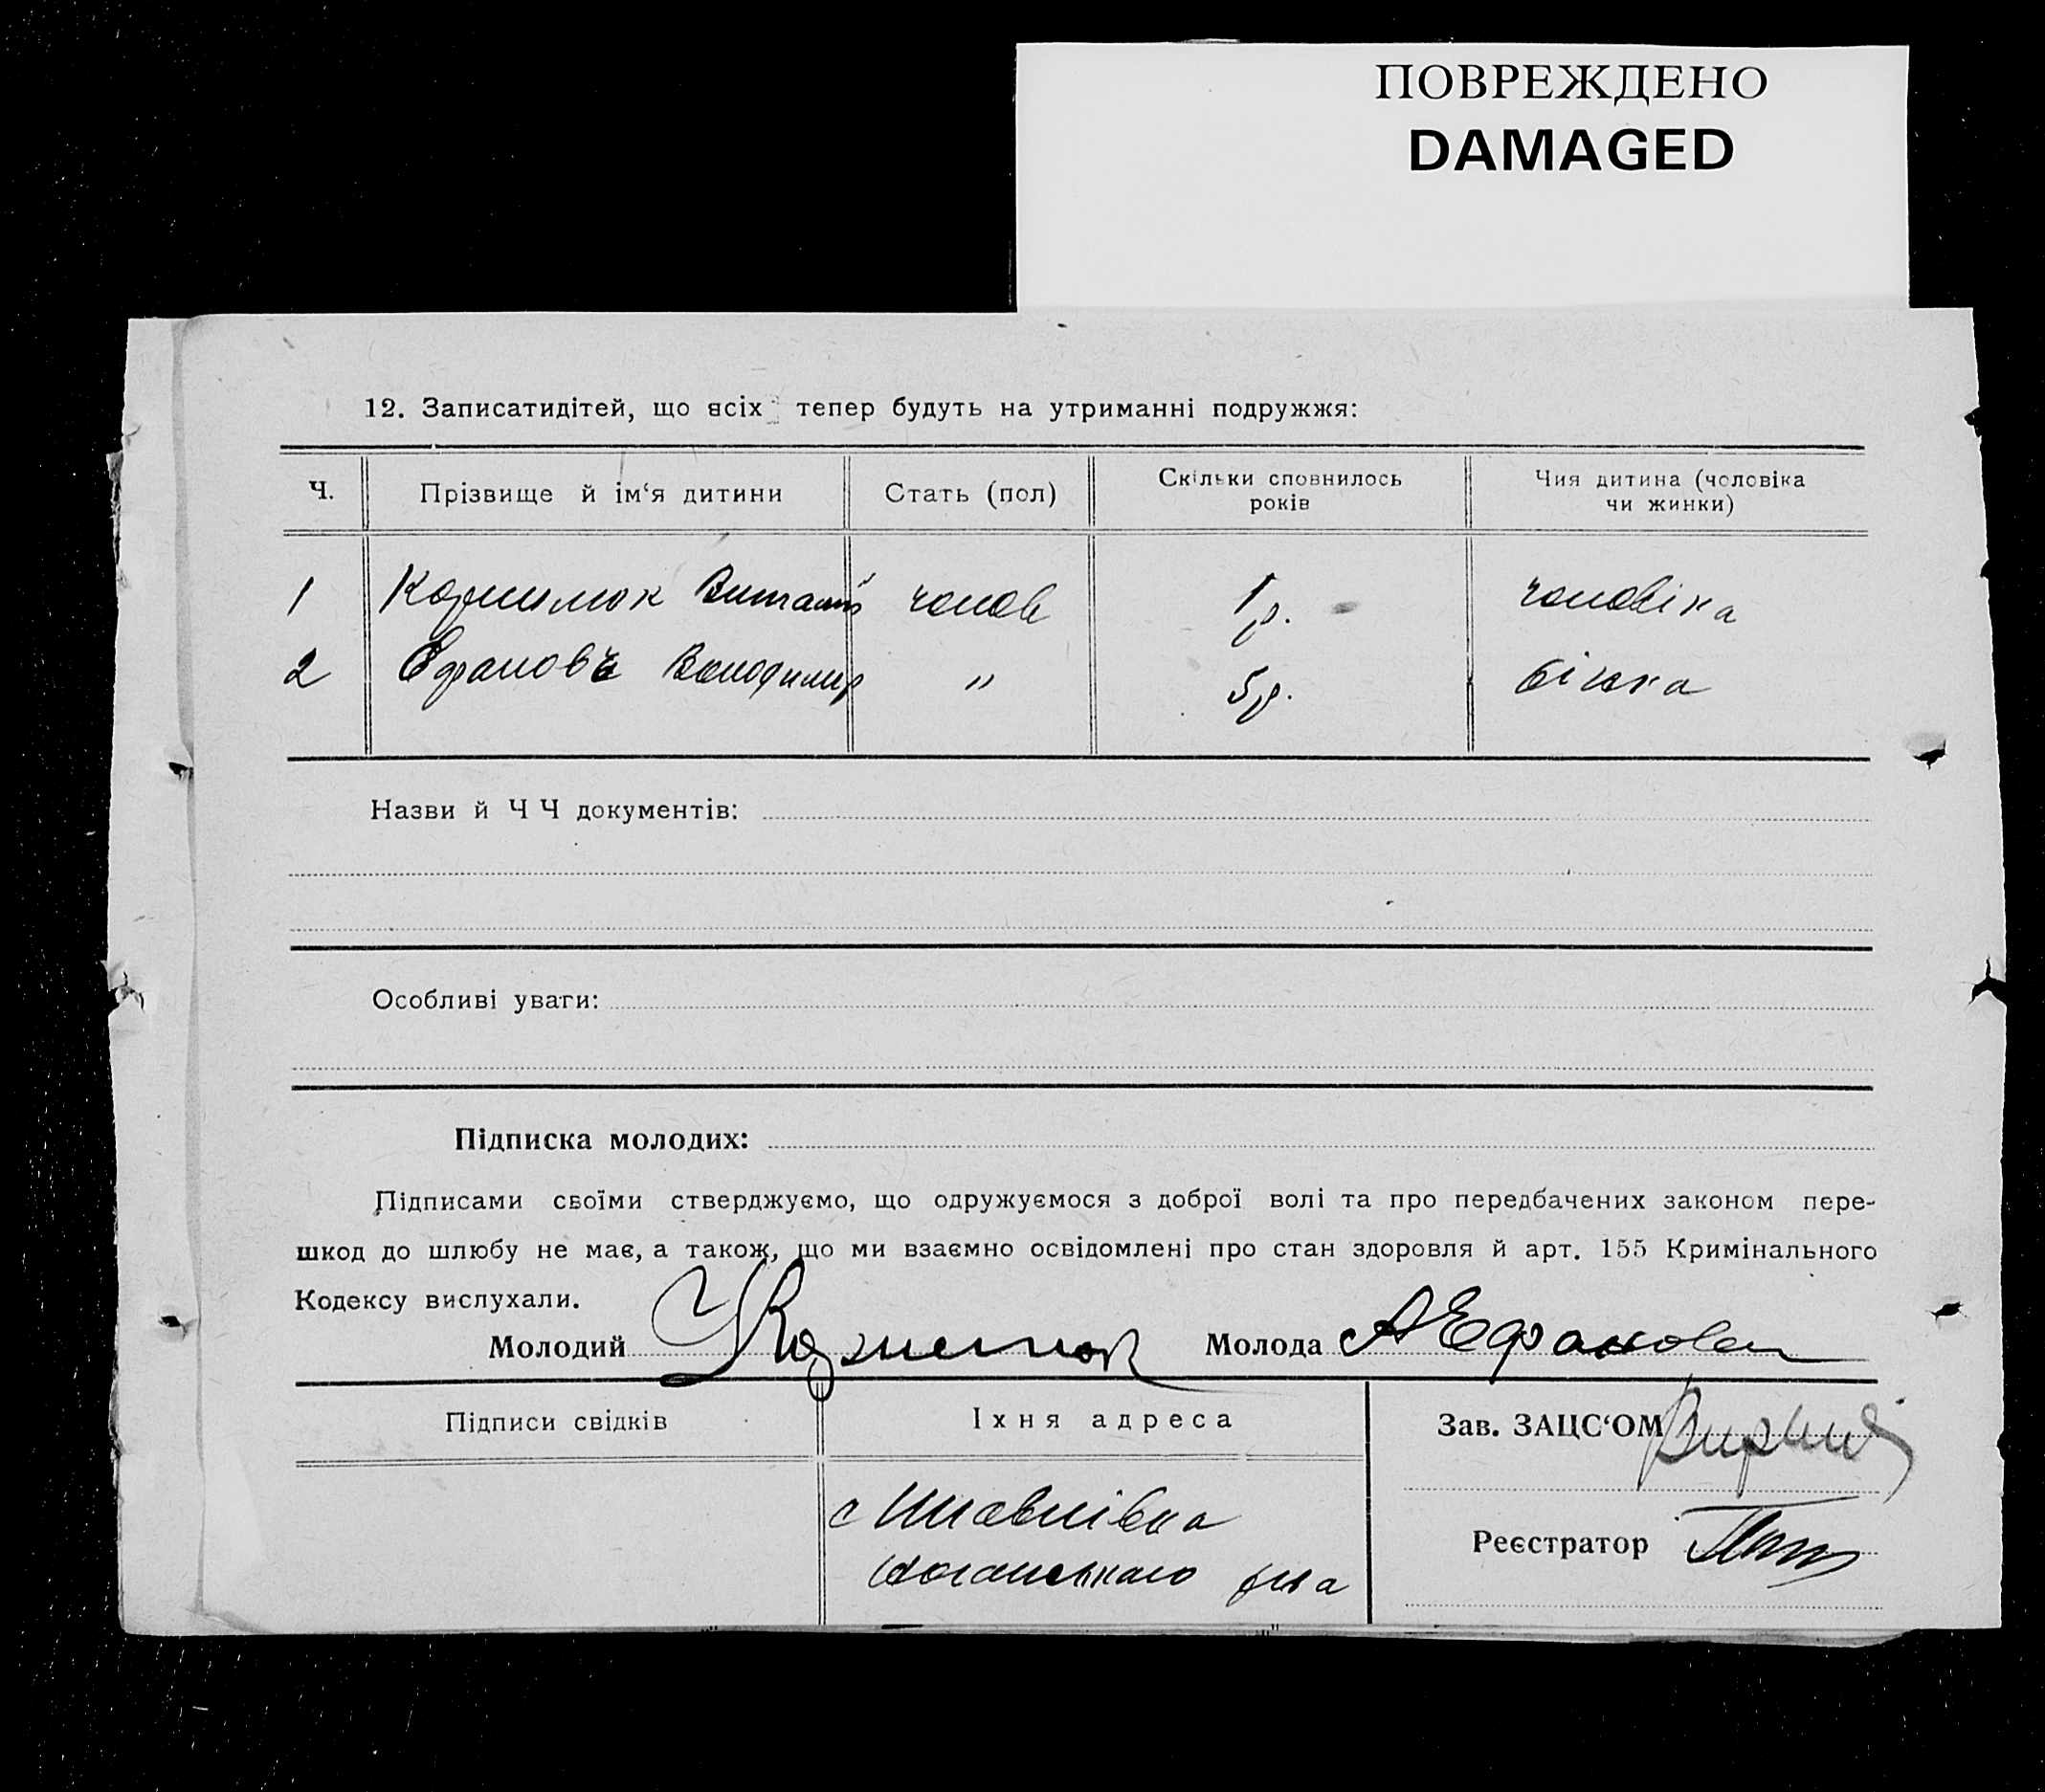 ПОВРЕЖДЕНО
DAMAGED
12. Записатидітей, що всіх тепер будуть на утриманні подружжя:
Ч. Прізвище й ім‘я дитини Стать (пол) Скільки сповнилось років Чия дитина (чоловіка чи жинки)
1 Виталий чолов 1 р. чоловіка
2 Володимир " 5 р.
Назви й Ч Ч документів:
Особливі уваги:
Підписка молодих:
Підписами своїми стверджуємо, що одружуємося з доброї волі та про передбачених законом пере-
шкод до шлюбу не має, а також, що ми взаємно освідомлені про стан здоровля й арт. 155 Кримінального
Кодексу вислухали.
Молодий Молода А Ефанова
Підписи свідків Їхня адреса Зав. ЗАЦС‘ОМ
с
р-на
Реєстратор